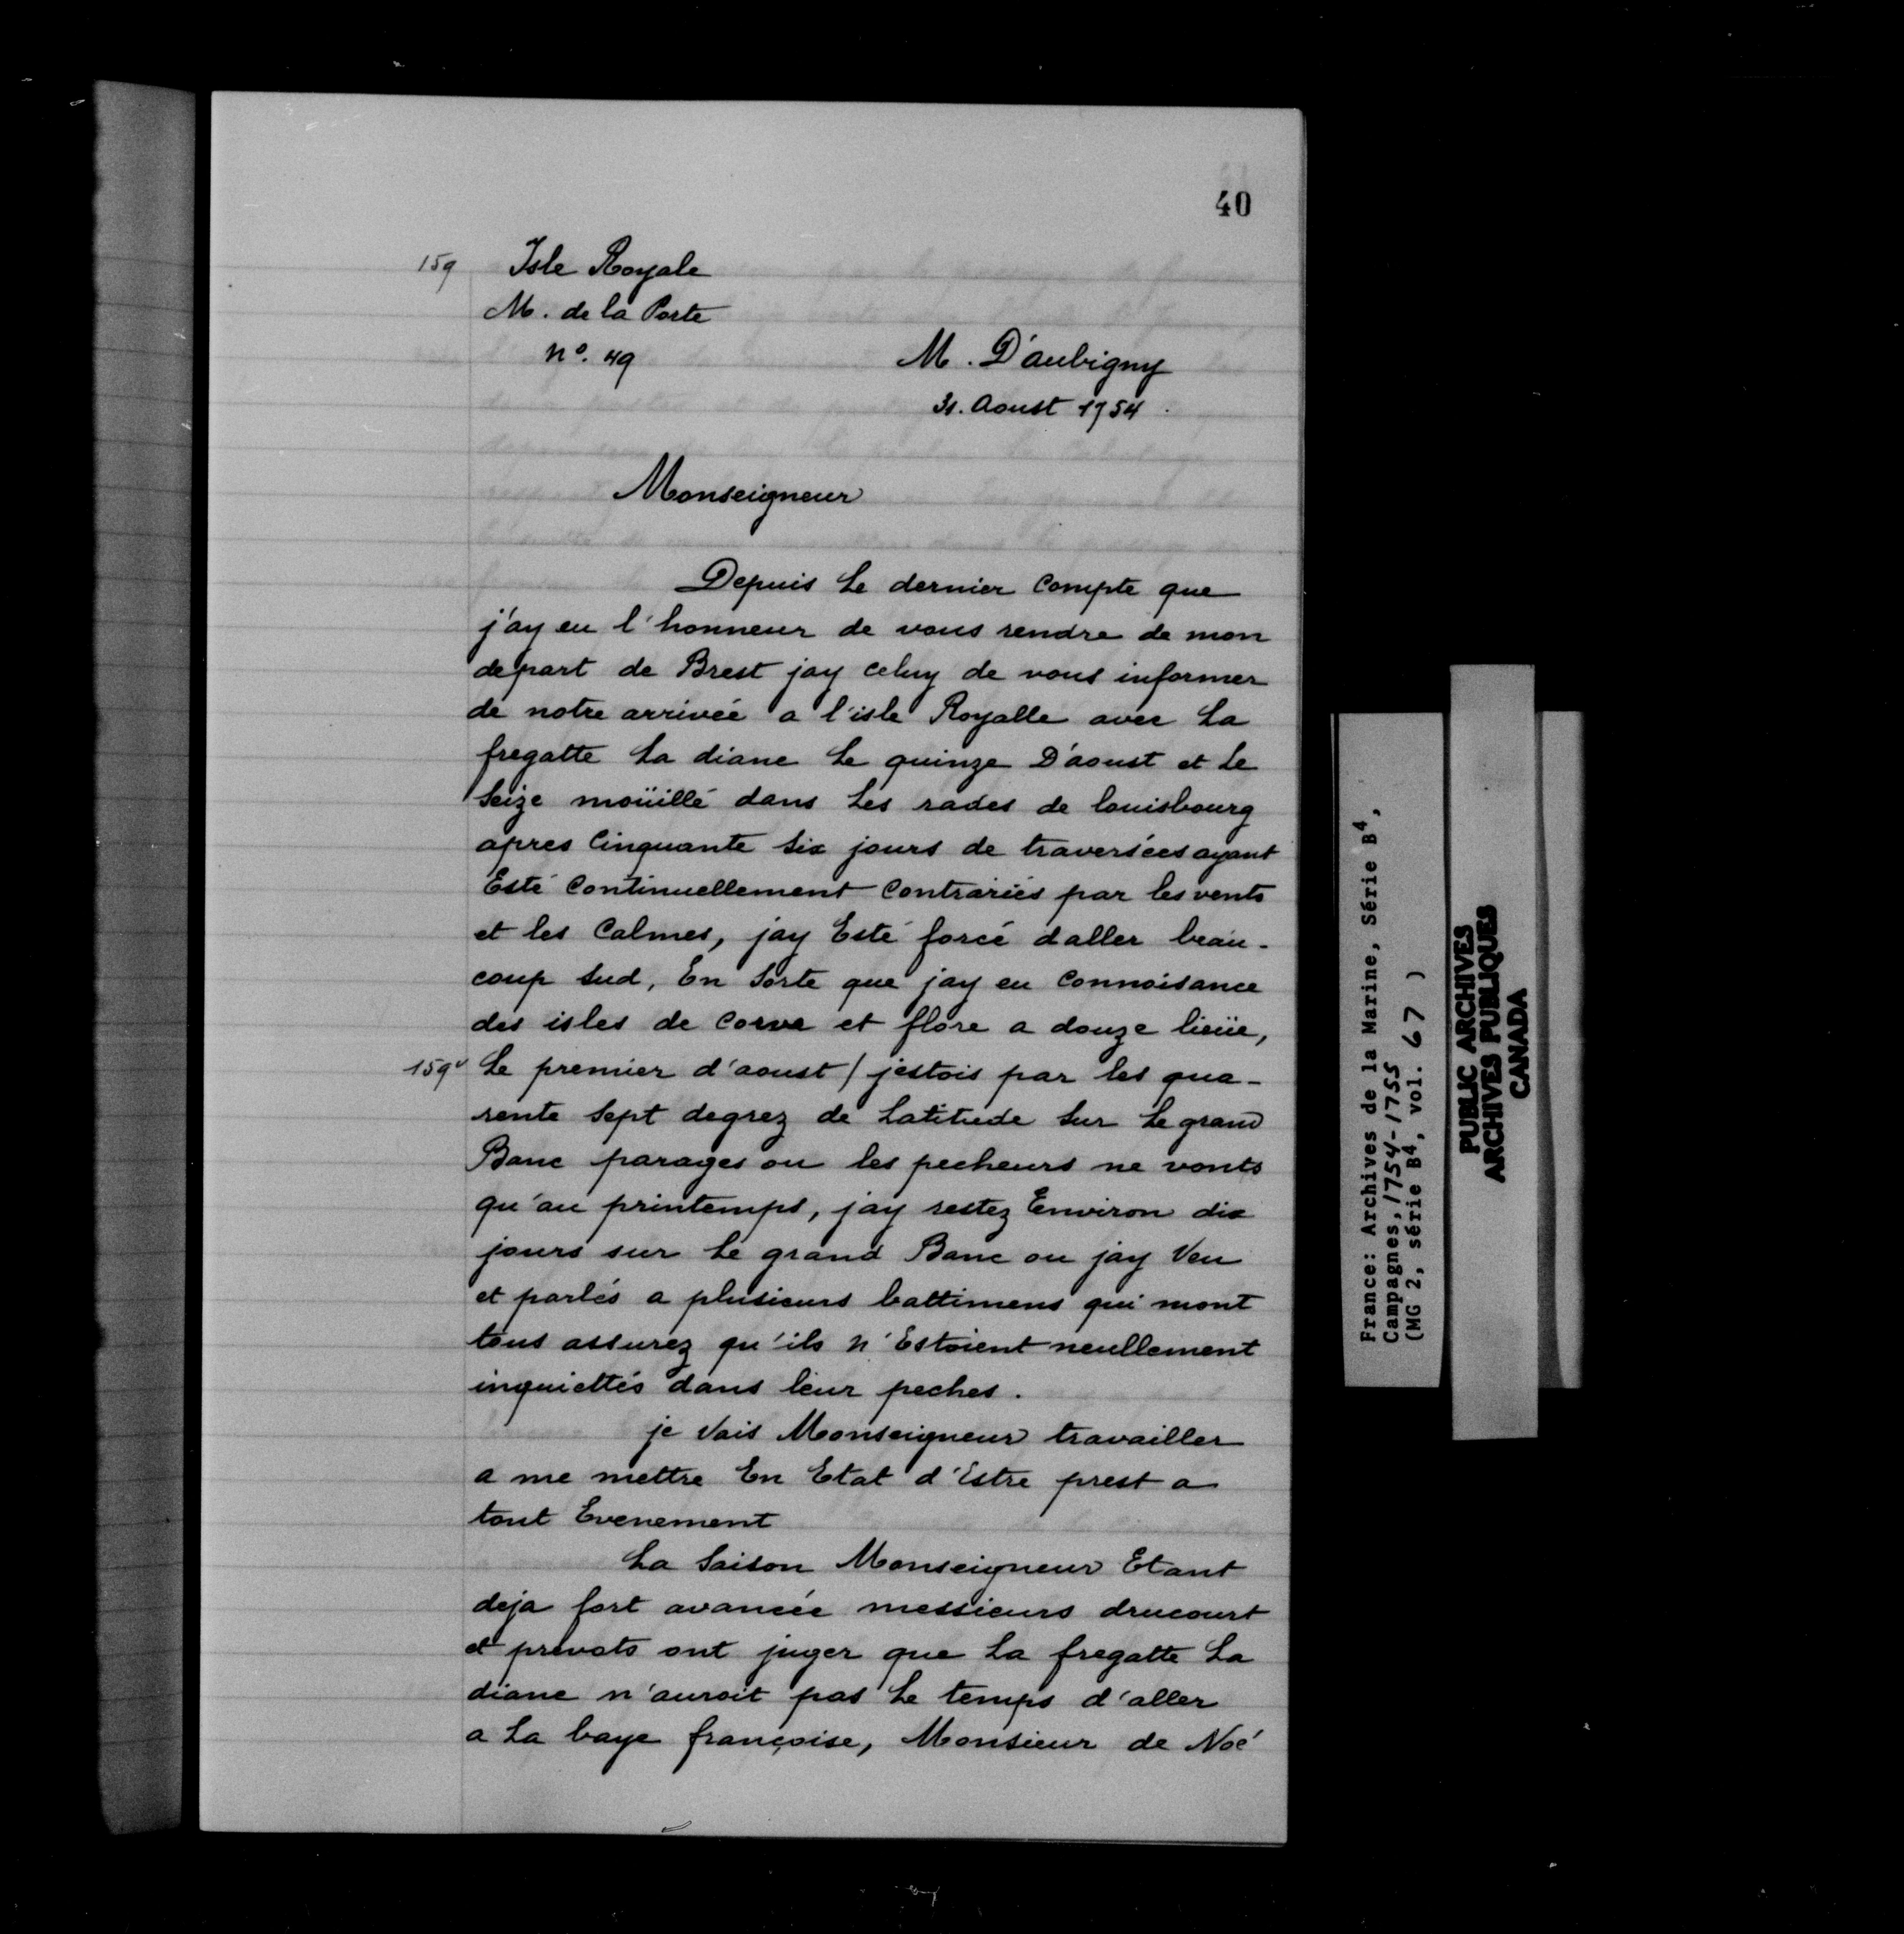 40
159 Isle Royale
M. de la Porte
nº. 49
M. D'aubigny
31. Aoust 1754.
Monseigneur
Depuis Le dernier Compte que
j'ay eu l'honneur de vous rendre de mon
depart de Brest jay celuy de vous informer
de notre arrivée a l'isle Royalle avec La
fregatte La diane Le quinze D'aoust et Le
Seize moüillé dans Les rades de louisbourg
apres Cinquante Six jours de traversées ayant
Esté Continuellement Contrariés par les vents
et les Calmes, jay Esté forcé daller beau-
coup Sud, En Sorte que jay eu Connoisance
des isles de Corve et flore a douze lieüe,
159v Le premier d'aoust / jestois par les qua-
rente Sept degrez de Latitude Sur Le grand
Banc parages ou les pecheurs ne vonts
qu'au printemps, jay restez Environ dix
jours sur Le grand Banc ou jay Veu
et parlés a plusieurs battimens qui mont
tous assurez qu'ils n'Estoient neullement
inquiettés dans leur peches.
je Vais Monseigneur travailler
a me mettre En Etat d'Estre prest a
tout Evenement
La Saison Monseigneur Etant
deja fort avancée messieurs drucourt
et prevots ont juger que La fregatte La
diane n'auroit pas Le temps d'aller
a La baye françoise, Monsieur de Noé
France: Archives de la Marine, Série B4,
Campagnes, 1754-1755
(MG 2, série B4, vol. 67 )
PUBLIC ARCHIVES
ARCHIVES PUBLIQUES
CANADA